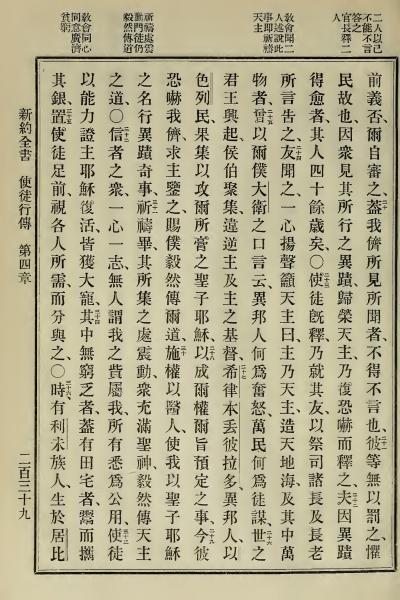 二人以己
不能不言
答之
官長釋二
人
教會聞二
人述說此
事即祈禱
天主
祈禱處震
動門徒仍
毅然傳道
教會同心
同意廣濟
貧窮
前義否爾自審之二十蓋我儕所見所聞者不得不言也二一彼等無以罰之懼
民故也因衆見其所行之異蹟歸榮天主乃復恐嚇而釋之二二夫因異蹟
得愈者其人四十餘歲矣〇二三使徒旣釋乃就其友以祭司諸長及長老
所言告之二四友聞之一心揚聲籲天主曰主乃天主造天地海及其中萬
物者二五嘗以爾僕大衛之口言云異邦人何爲奮怒萬民何爲徒謀二六世之
君王興起侯伯聚集違逆主及主之基督二七希律本丟彼拉多異邦人以
色列民果集以攻爾所膏之聖子耶穌二八以成爾權爾旨預定之事二九今彼
恐嚇我儕求主鑒之賜僕毅然傳爾道三十施權以醫人使我以聖子耶穌
之名行異蹟奇事三一祈禱畢其所集之處震動衆充滿聖神毅然傳天主
之道〇三二信者之衆一心一志無人謂我之貲屬我所有悉爲公用三三使徒
以能力證主耶穌復活皆獲大寵三四其中無窮乏者蓋有田宅者鬻而攜
其銀三五置使徒足前視各人所需而分與之〇三六時有利未族人生於居比
新約全書 使徒行傳 第四章 二百三十九